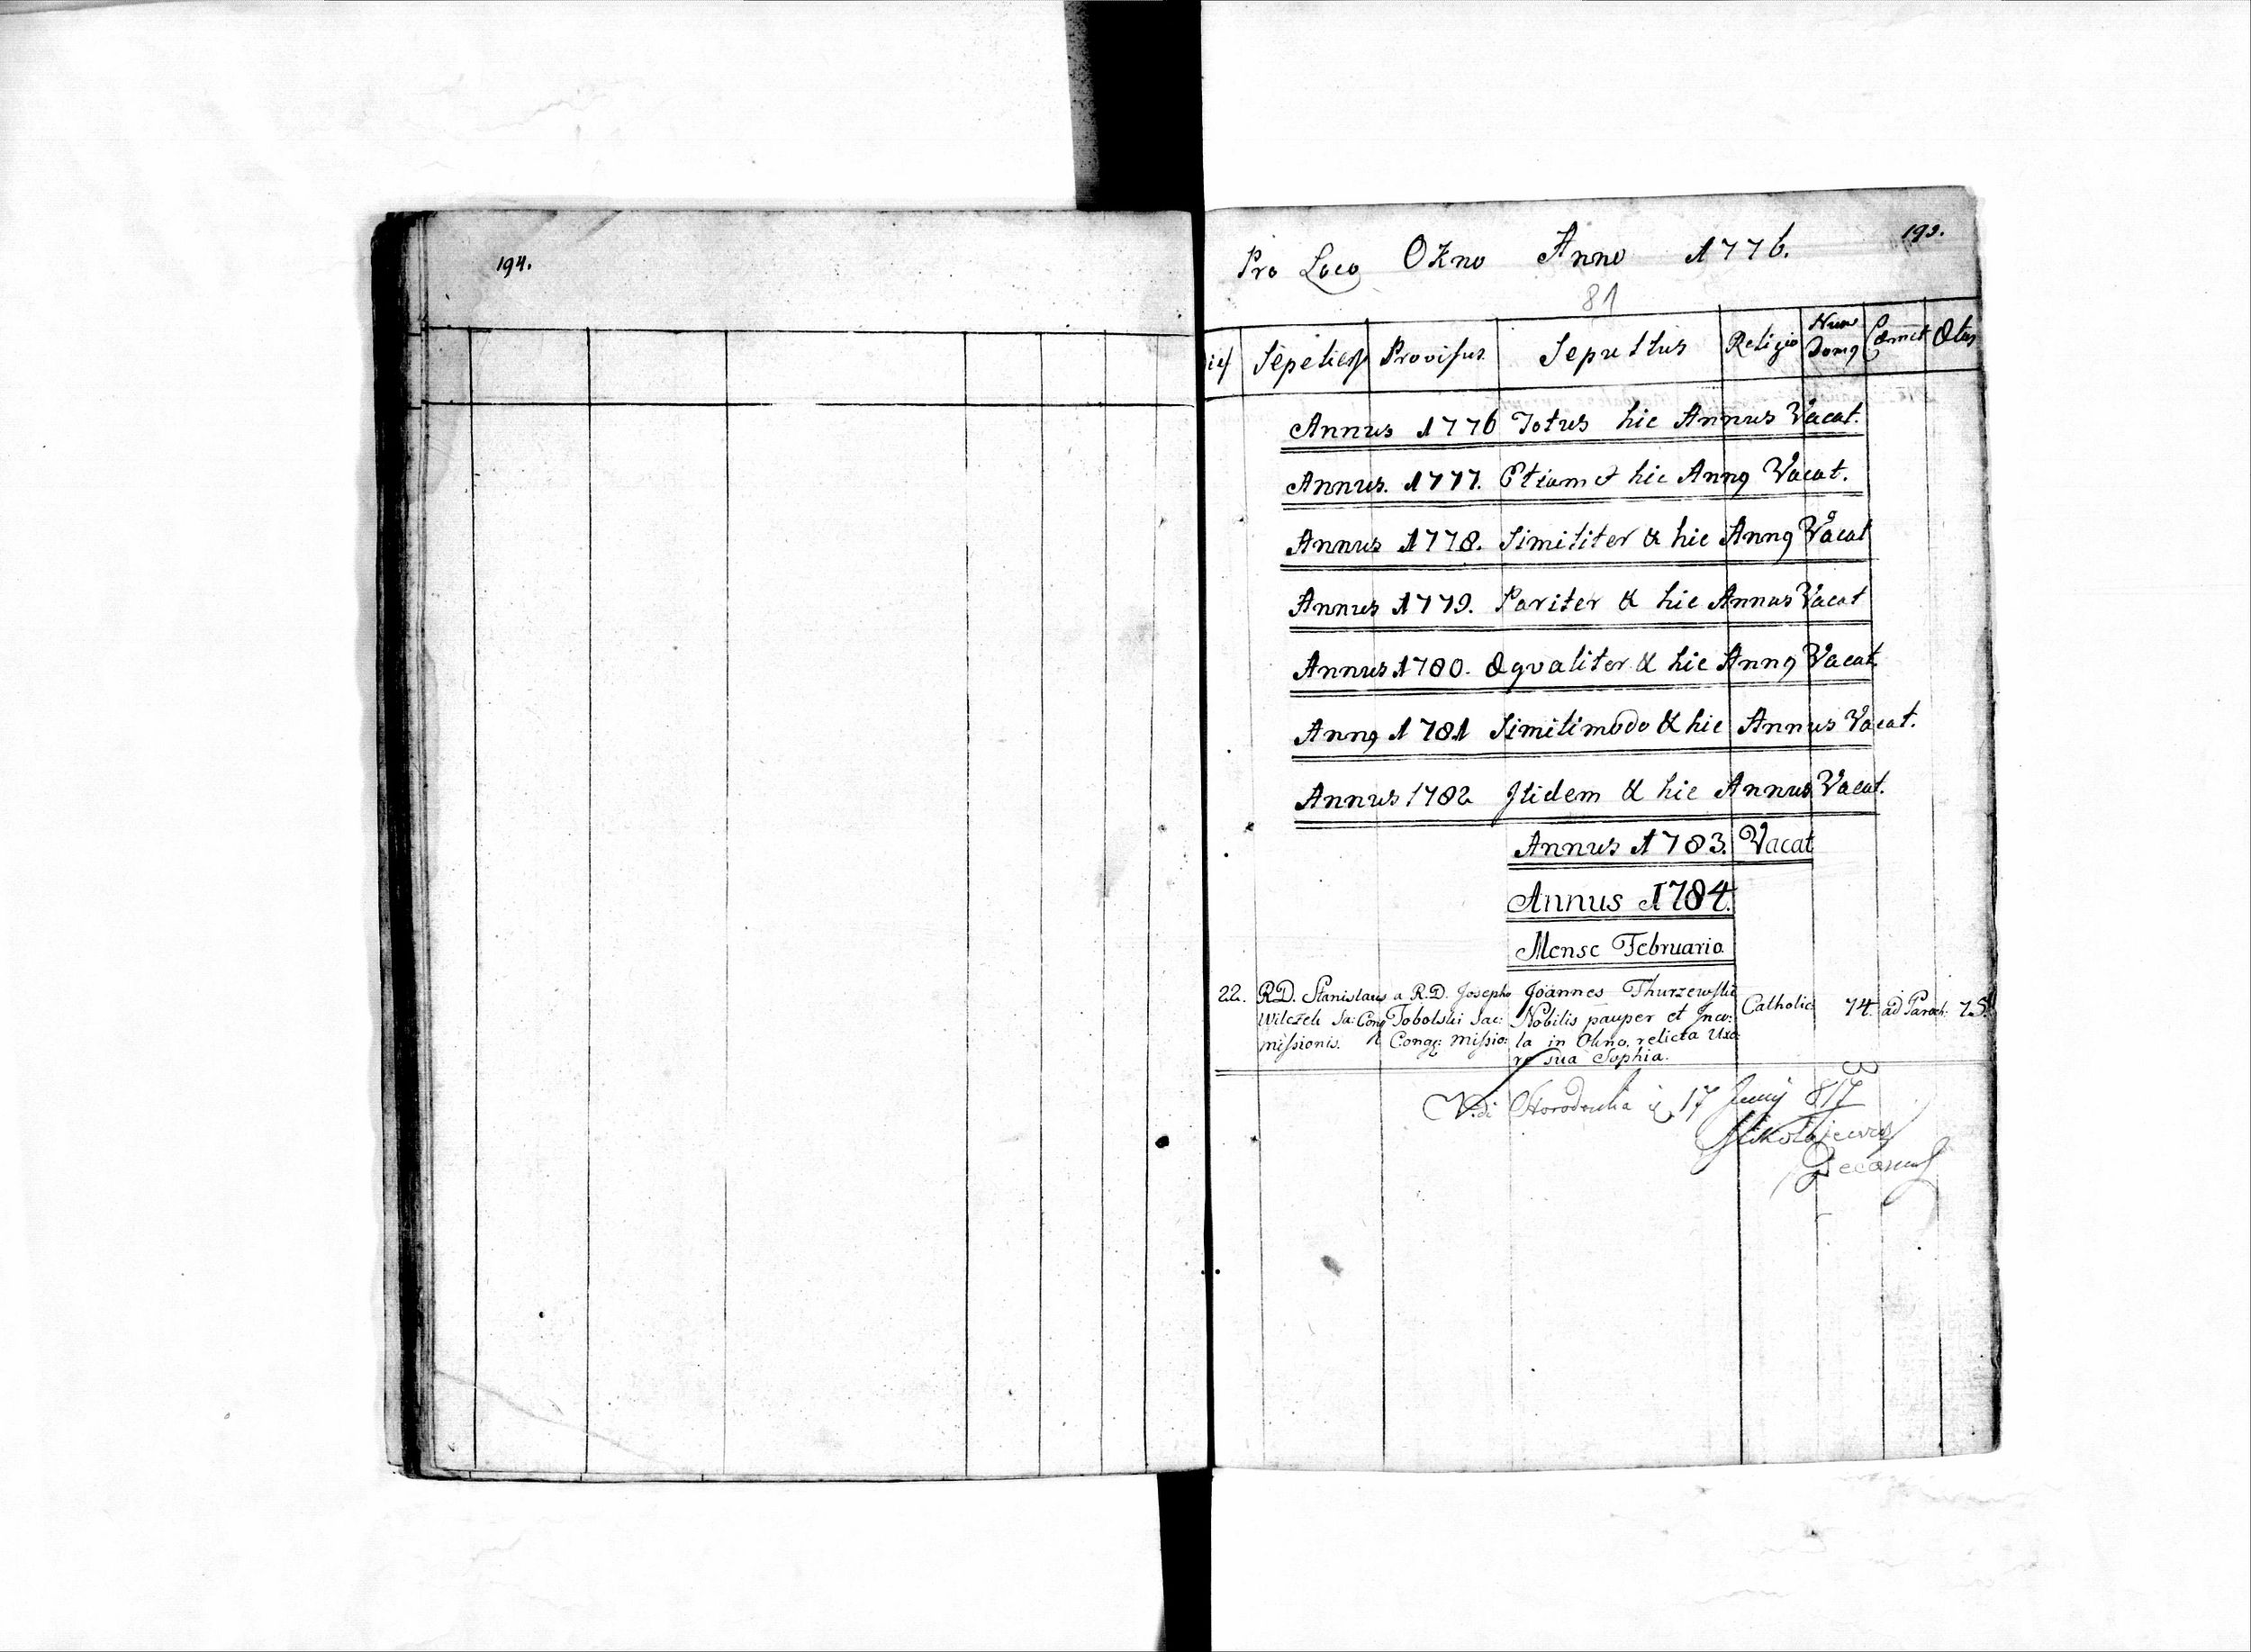 194.
193.
Pro Loco Okno Anno 1776.
81
ies Sepeliens Provisus Sepultus Religio Num Domq Cæmet Ætas
Annus 1776 Totus hic Annus Vacat.
Annus. 1777. Etiam & hic Annq Vacat.
Annus 1778. Similiter & hic Annq Vacat
Annus 1779. Pariter & hic Annus Vacat
Annus 1780. Æqvaliter & hic Annq Vacat.
Annq 1781 Similimodo & hic Annus Vacat.
Annus 1782 Itidem & hic Annus Vacat.
Annus 1783. Vacat
Annus 1784.
Mense Februario
22. R.D. Stanislaus a R.D. Josepho Joannes Thurzewski Catholic 74. ad Paroch: 75.
Wilczek Sa: Cong Tobolski Sac: Nobilis pauper et Inco:
missionis. Congg: Missio: la in Okno, relicta Uxo:
re sua Sophia.
Vidi Horodenka 17 Junij 817
Mikołajewicz
Decanus